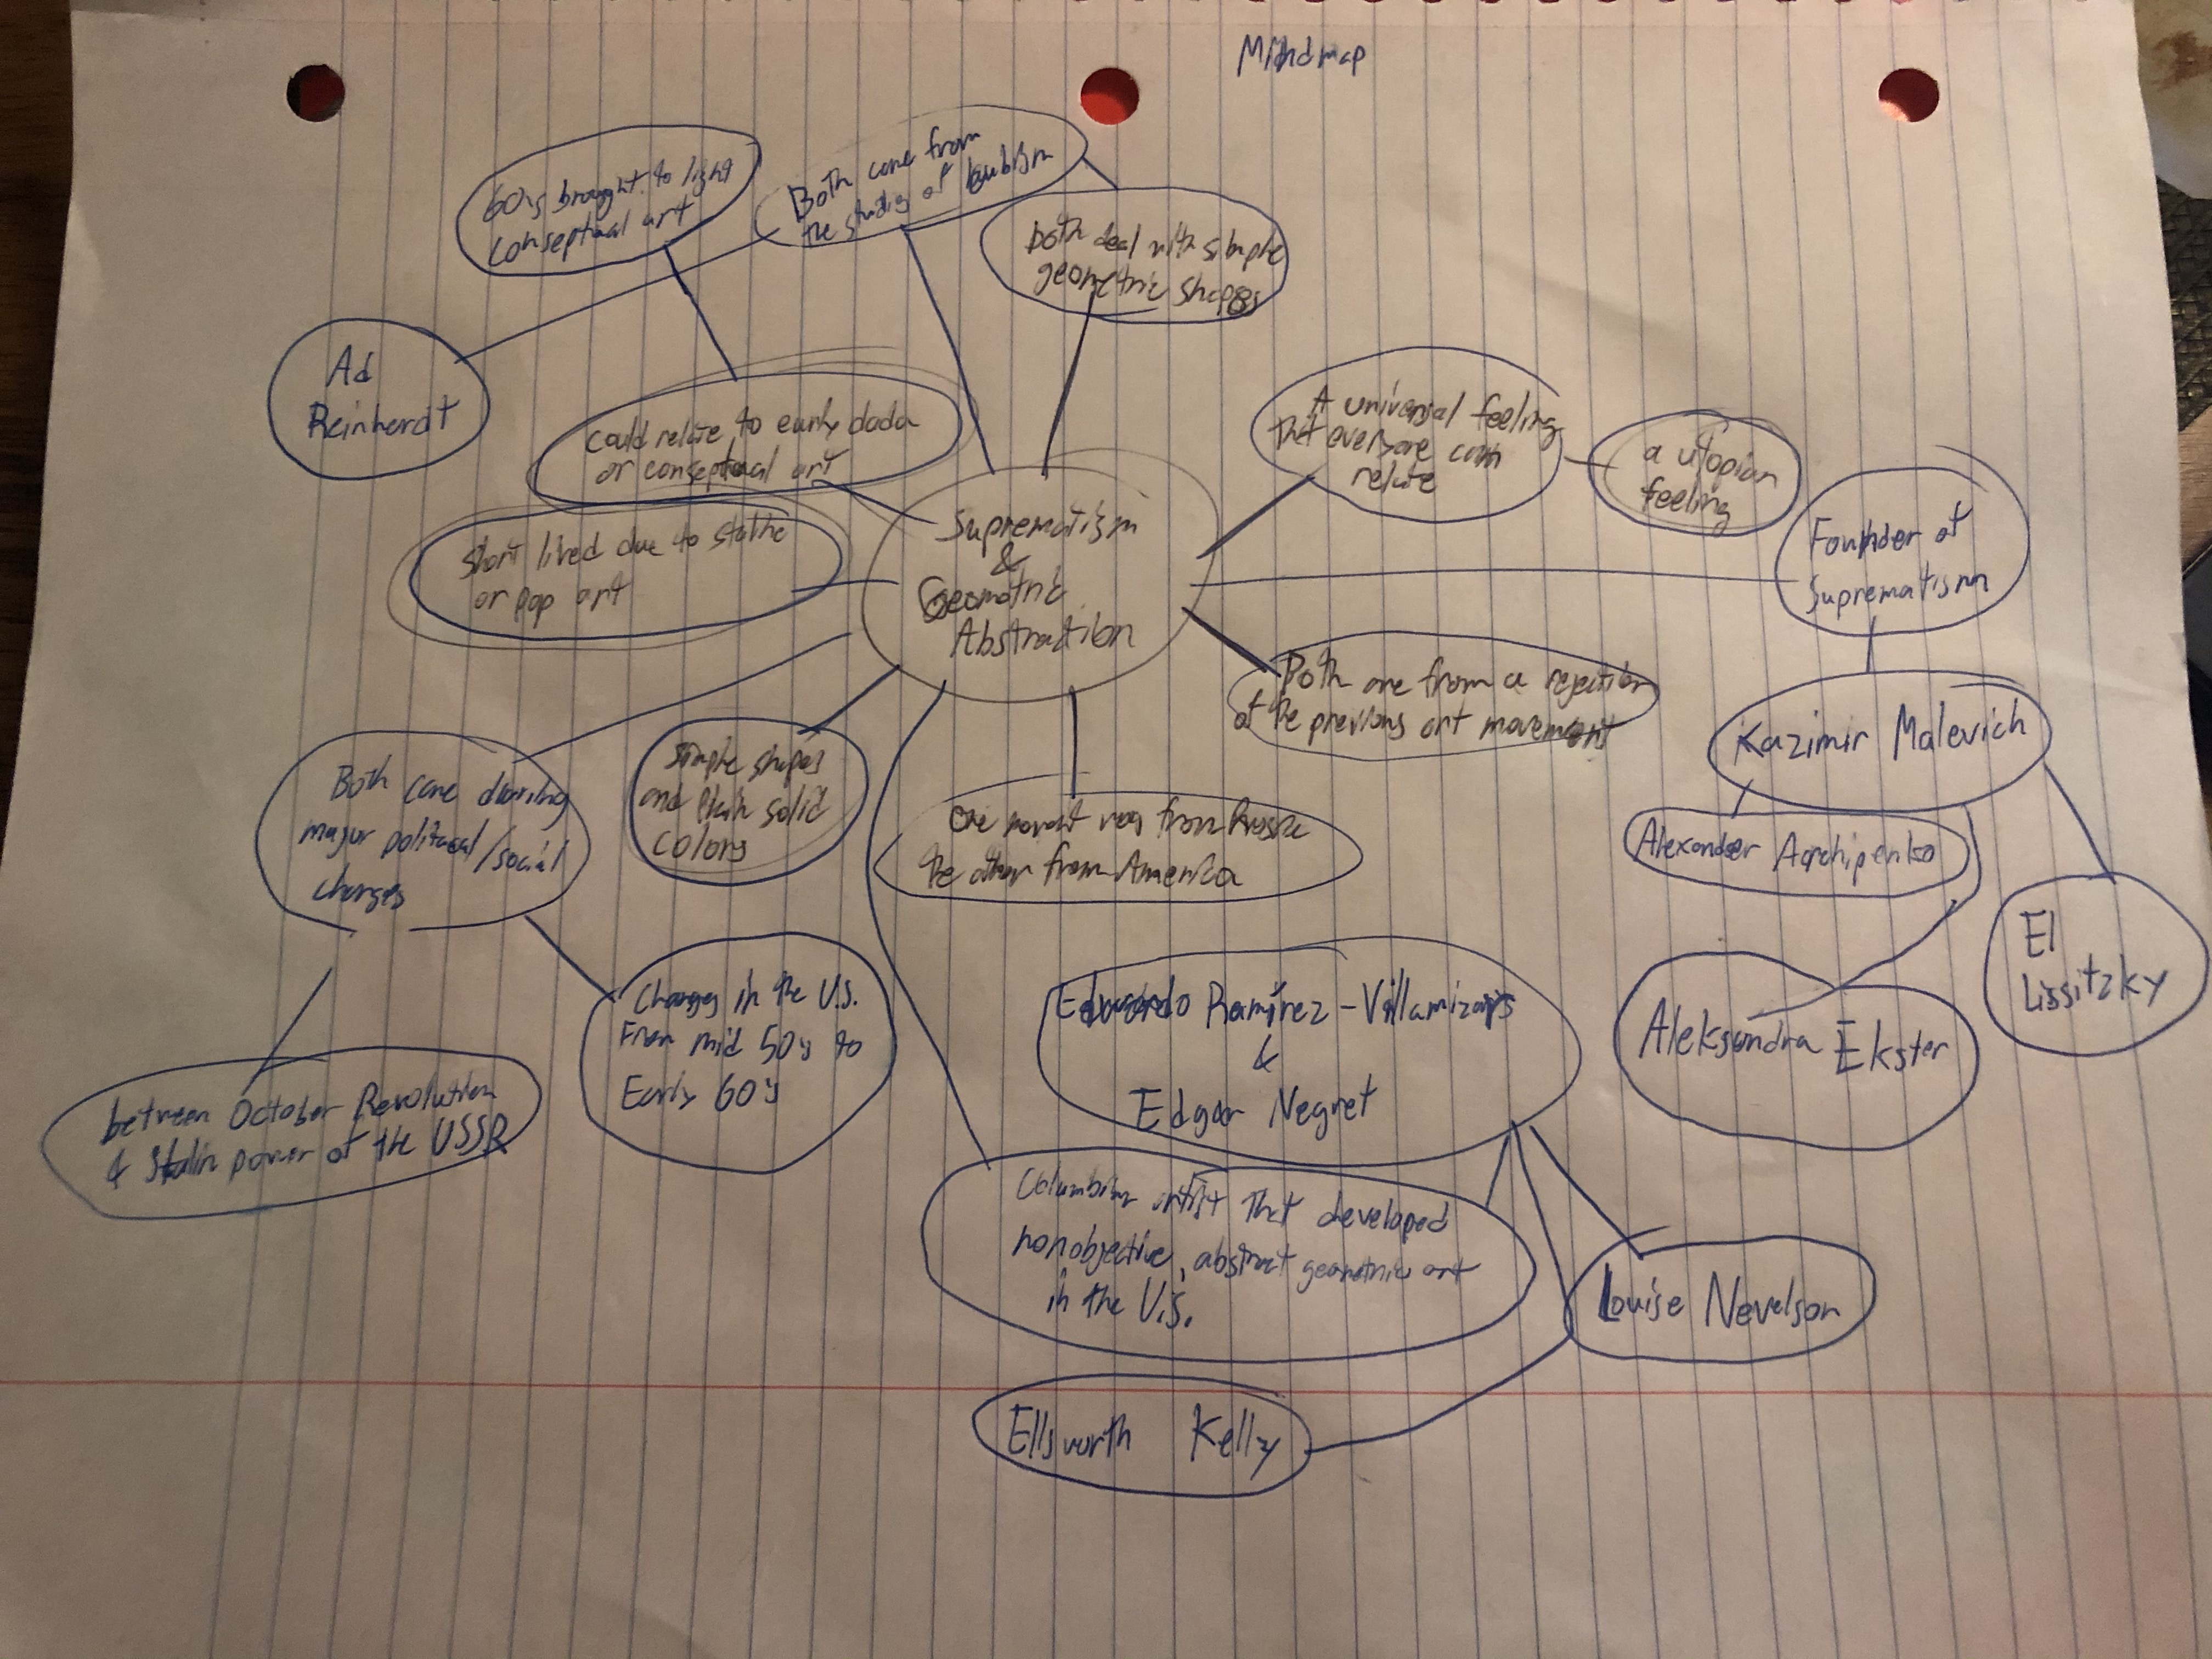 Mindmap
60's brought to light
conseptual art
Both came from
the studies of kubism
both deal with simple
geometric shapes
Ad
Reinhardt
could relate to early dada
or conseptual art
A universal feeling
that everyone can
relate
a utopian
feeling
Founder of
Suprematism
short lived due to
or pop art
Suprematism
&
Geometric
Abstraction
Both are from a rejection
of the previous art movement
Kazimir Malevich
Both came during
major political/social
changes
simple shapes
and plain solid
colors
One was from
the other from America
Alexander Archipenko
El
Lissitzky
Changes in the U.S.
From mid 50's to
Early 60's
Eduardo Ramírez-Villamizar's
&
Edgar Negret
Aleksandra Ekster
between October Revolution
& Stalin power of the USSR
Columbian artist that developed
nonobjective, abstract geometric art
in the U.S.
Louise Nevelson
Ellsworth Kelly